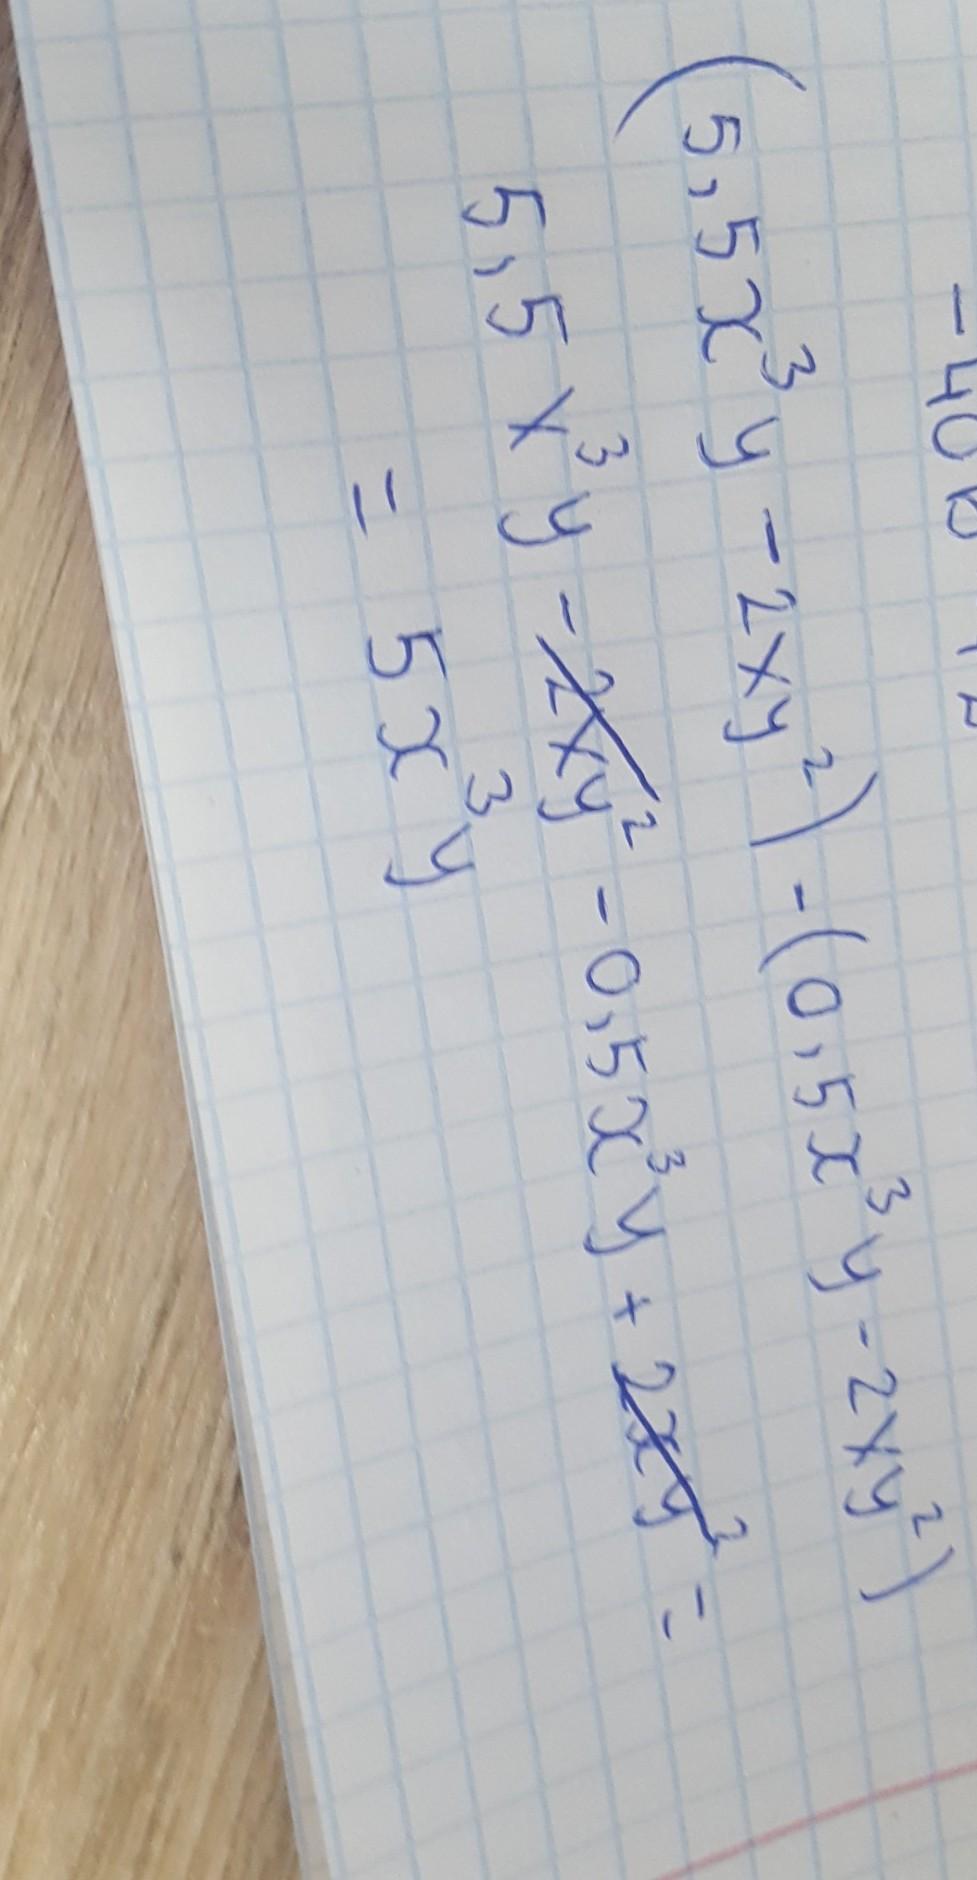 (5,5x³y - 2xy²) - (0,5x³y - 2xy²)
5,5x³y - 2xy² - 0,5x³y + 2xy² =
= 5x³y